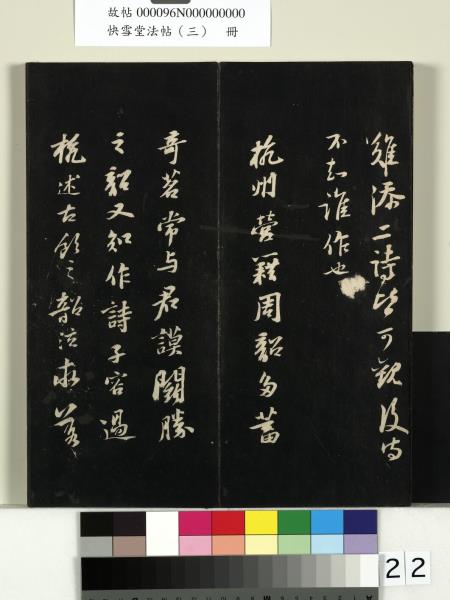 故帖 000096N000000000
快雪堂法帖（三） 冊
雖添二詩皆可觀後詩
不知誰作也
杭州營籍周韶多蓄
奇茗常与君謨鬪勝
之韶又知作詩子容過
杭述古飲之韶泣求落
22